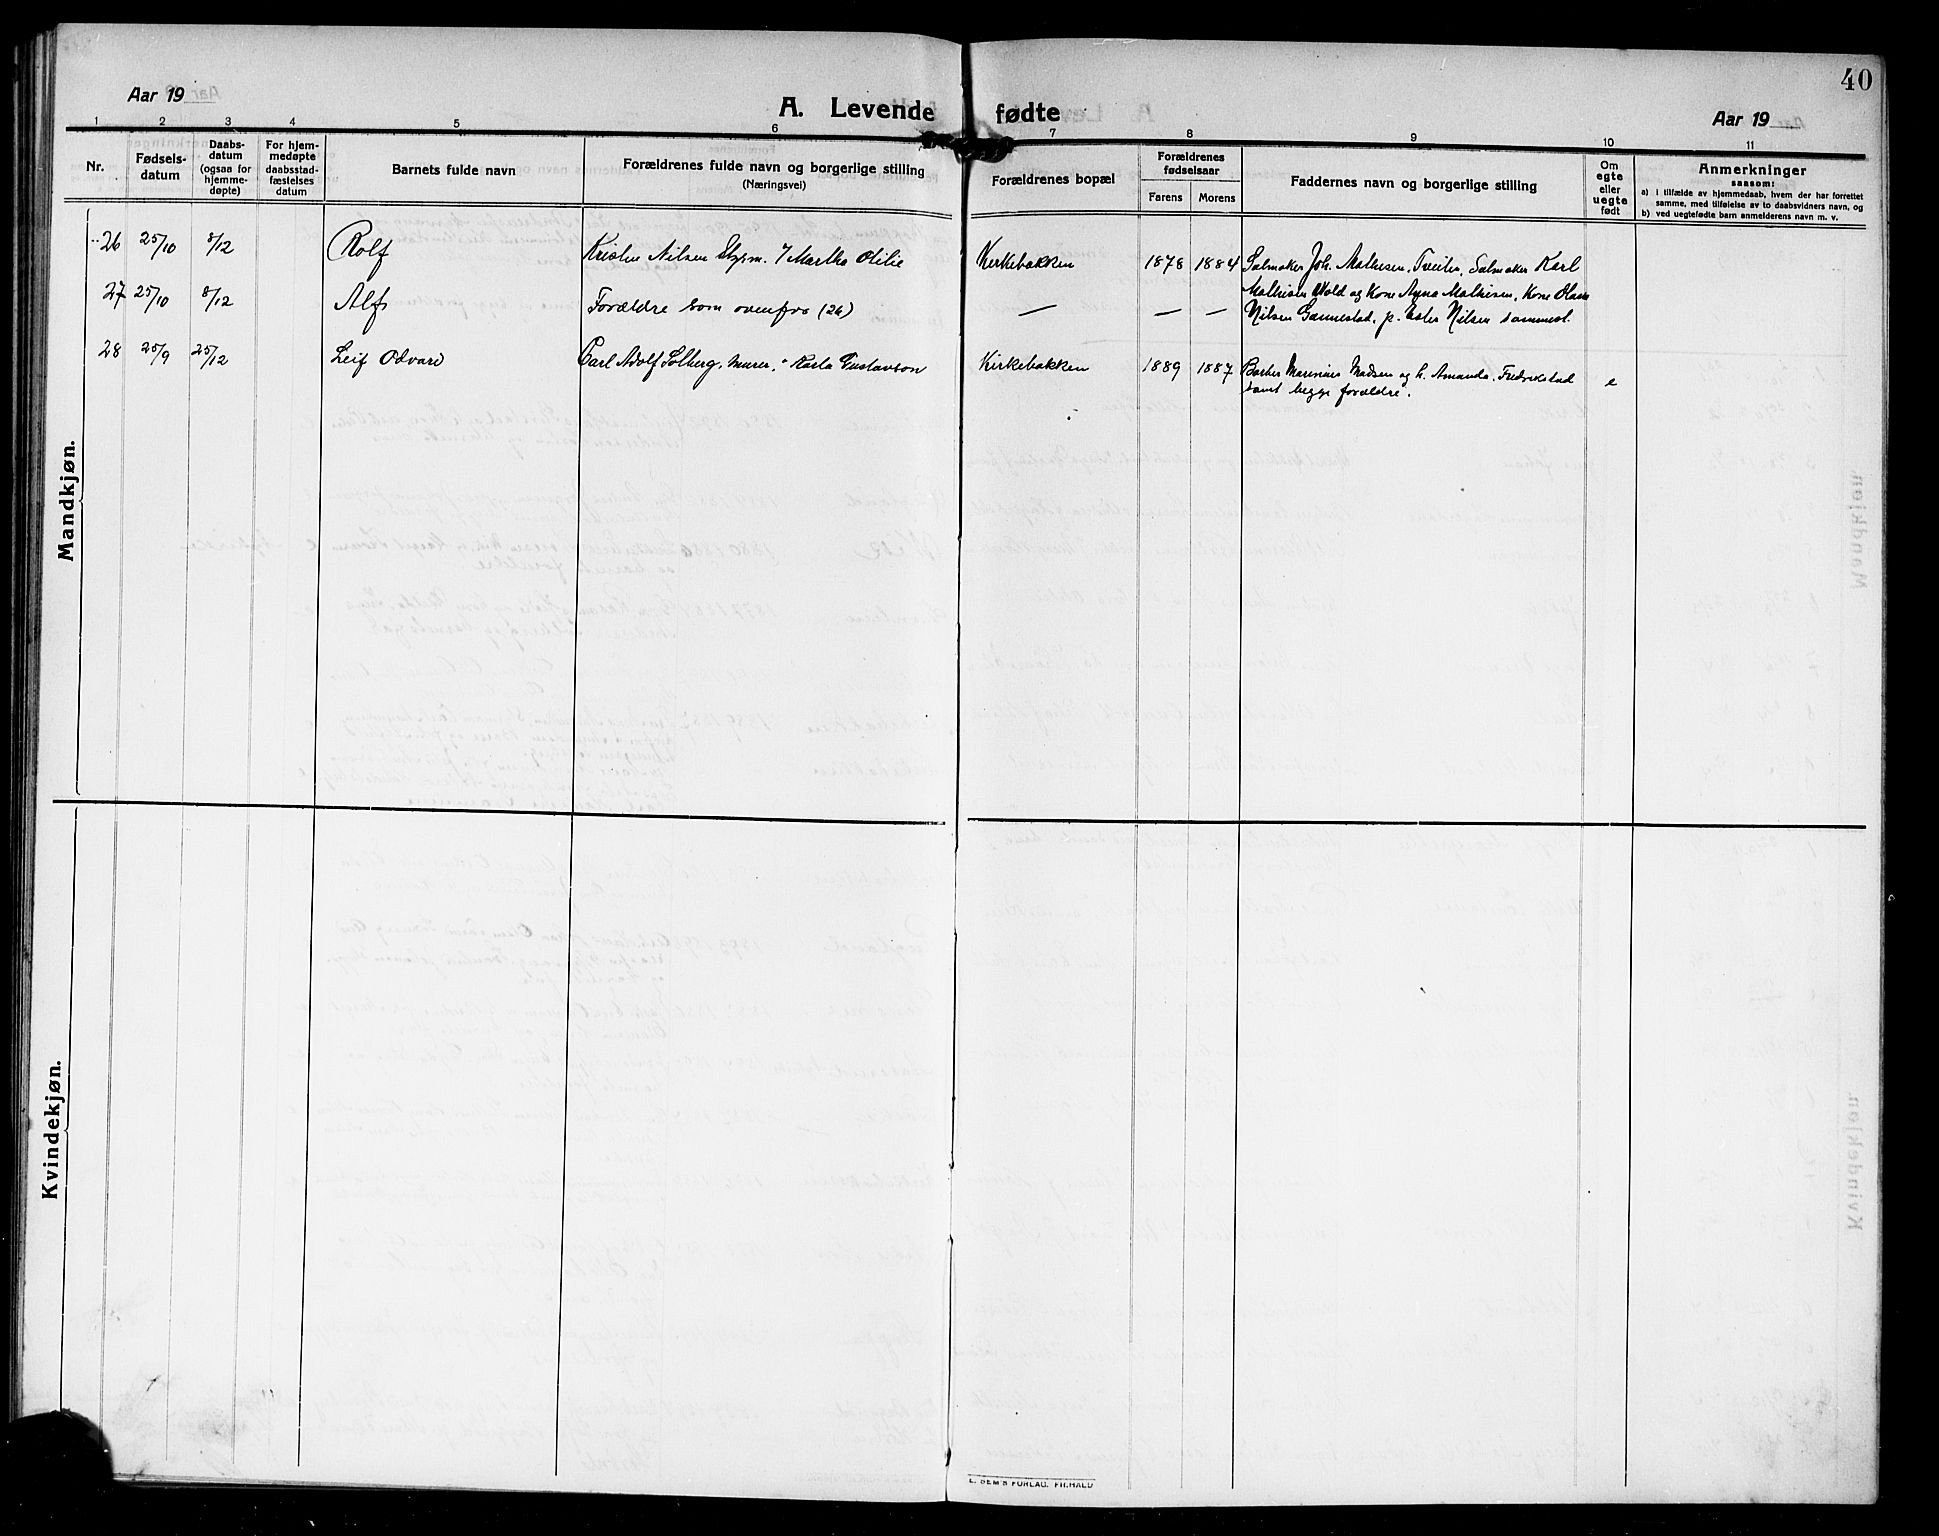 40
Aar 19
A. Levende fødte
Aar 19
1 2 3 4 5 6 7 8 9 10 11
Nr.
Fødsels-
datum
Daabs-
datum
(ogsaa for
hjemme-
døpte)
For hjem-
medøpte
daabsstad-
fæstelses
datum
Barnets fulde navn
Forældrenes fulde navn og borgerlige stilling
(Næringsvei)
Forældrenes bopæl
Forældrenes
fødselsaar
Farens Morens
Faddernes navn og borgerlige stilling
Om
egte
eller
uegte
født
Anmerkninger
saasom:
a) i tilfælde av hjemmedaab, hvem der har forrettet
samme, med tilføielse av to daabsvidners navn, og
b) ved uegtefødte barn anmelderens navn m. v.
Mandkjøn.
26 25/10 8/12 Rolf Kristen Nilsen Styrm. Martha Otilie Kirkebakken 1878 1884 Salmaker Joh. Mathisen, Salmaker Karl
Mathisen Wold og Kone Agna Mathisen, Kone
27 25/10 8/12 Alf Forældre som ovenfra (26) — — — Nilsen Gannestad, p. Ester Nilsen sammest.
28 25/9 25/12 Leif Odvard Carl Adolf Solberg, murer, Karla Gustavson Kirkebakken 1889 1887 Barber Marinius Madsen og h. Amanda, Fredrikstad e
samt begge forældre.
Kvindekjøn.
E. SEM'S FORLAG. FR.HALD